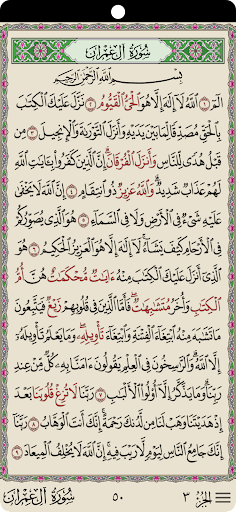 سُورَةُ آلِ عِمْرَانَ
بِسْمِ اللَّهِ الرَّحْمَٰنِ الرَّحِيمِ
الٓمٓ ١ اللَّهُ لَا إِلَٰهَ إِلَّا هُوَ الْحَيُّ الْقَيُّومُ ٢ نَزَّلَ عَلَيْكَ الْكِتَٰبَ
بِالْحَقِّ مُصَدِّقًا لِّمَا بَيْنَ يَدَيْهِ وَأَنزَلَ التَّوْرَىٰةَ وَالْإِنجِيلَ ٣ مِن
قَبْلُ هُدًى لِّلنَّاسِ وَأَنزَلَ الْفُرْقَانَ إِنَّ الَّذِينَ كَفَرُوا بِـَٔايَٰتِ اللَّهِ
لَهُمْ عَذَابٌ شَدِيدٌ وَاللَّهُ عَزِيزٌ ذُو انتِقَامٍ ٤ إِنَّ اللَّهَ لَا يَخْفَىٰ
عَلَيْهِ شَيْءٌ فِي الْأَرْضِ وَلَا فِي السَّمَاءِ ٥ هُوَ الَّذِي يُصَوِّرُكُمْ
فِي الْأَرْحَامِ كَيْفَ يَشَاءُ لَا إِلَٰهَ إِلَّا هُوَ الْعَزِيزُ الْحَكِيمُ ٦ هُوَ
الَّذِي أَنزَلَ عَلَيْكَ الْكِتَٰبَ مِنْهُ ءَايَٰتٌ مُّحْكَمَٰتٌ هُنَّ أُمُّ
الْكِتَٰبِ وَأُخَرُ مُتَشَٰبِهَٰتٌ فَأَمَّا الَّذِينَ فِي قُلُوبِهِمْ زَيْغٌ فَيَتَّبِعُونَ
مَا تَشَٰبَهَ مِنْهُ ابْتِغَاءَ الْفِتْنَةِ وَابْتِغَاءَ تَأْوِيلِهِ وَمَا يَعْلَمُ تَأْوِيلَهُ
إِلَّا اللَّهُ وَالرَّٰسِخُونَ فِي الْعِلْمِ يَقُولُونَ ءَامَنَّا بِهِ كُلٌّ مِّنْ عِندِ
رَبِّنَا وَمَا يَذَّكَّرُ إِلَّا أُولُوا الْأَلْبَٰبِ ٧ رَبَّنَا لَا تُزِغْ قُلُوبَنَا بَعْدَ
إِذْ هَدَيْتَنَا وَهَبْ لَنَا مِن لَّدُنكَ رَحْمَةً إِنَّكَ أَنتَ الْوَهَّابُ ٨ رَبَّنَا
إِنَّكَ جَامِعُ النَّاسِ لِيَوْمٍ لَّا رَيْبَ فِيهِ إِنَّ اللَّهَ لَا يُخْلِفُ الْمِيعَادَ ٩
الجزء ٣
٥٠
سُورَةُ آلِ عِمْرَانَ